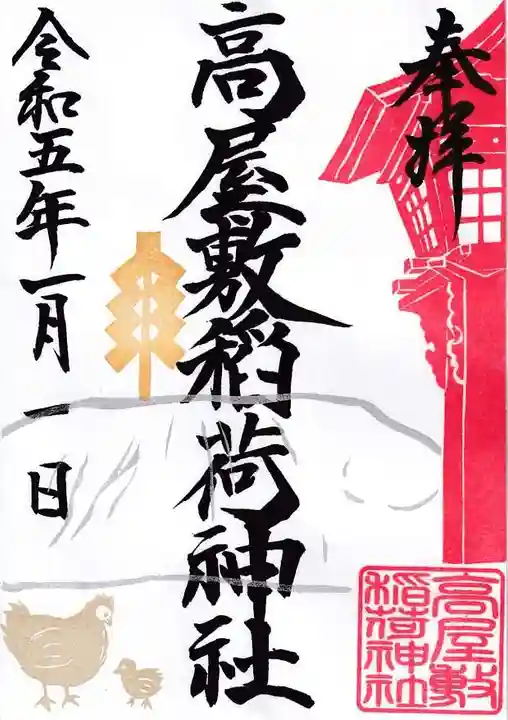 奉拝
高屋敷稲荷神社
令和五年一月一日
高屋敷
稲荷神社